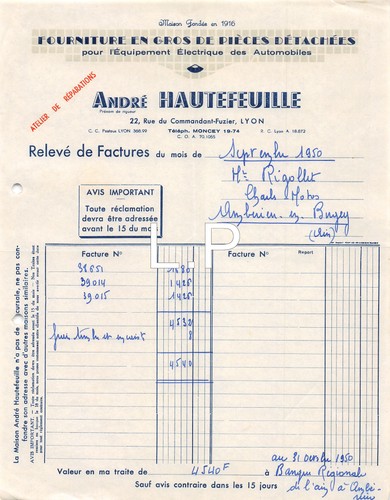 Maison Fondée en 1916
FOURNITURE EN GROS DE PIÈCES DÉTACHÉES
pour l'Équipement Électrique des Automobiles
ATELIER DE RÉPARATIONS
ANDRÉ HAUTEFEUILLE
Prénom de rigueur
22, Rue du Commandant-Fuzier, LYON
C. C. Postaux LYON 366.99 Téléph. MONCEY 19-74 R. C. Lyon A 18.573
C. O. A. 70.1065
Relevé de Factures du mois de Septembre 1950
Mr Rigollet
Charles Motos
Ambérieu-en-Bugey
(Ain)
AVIS IMPORTANT
Toute réclamation
devra être adressée
avant le 15 du mois
L P
Facture No Facture No Report
38651 1680
39014 1426
39015 1426
4532
frais timbre et encaist 8
4540
La Maison André Hautefeuille n'a pas de succursale, ne pas confondre son adresse avec d'autres maisons similaires.
AVIS IMPORTANT.
au 31 octobre 1950
Valeur en ma traite de 4540F à Banque Régionale
Sauf avis contraire dans les 15 jours de l'Ain à Ambérieu